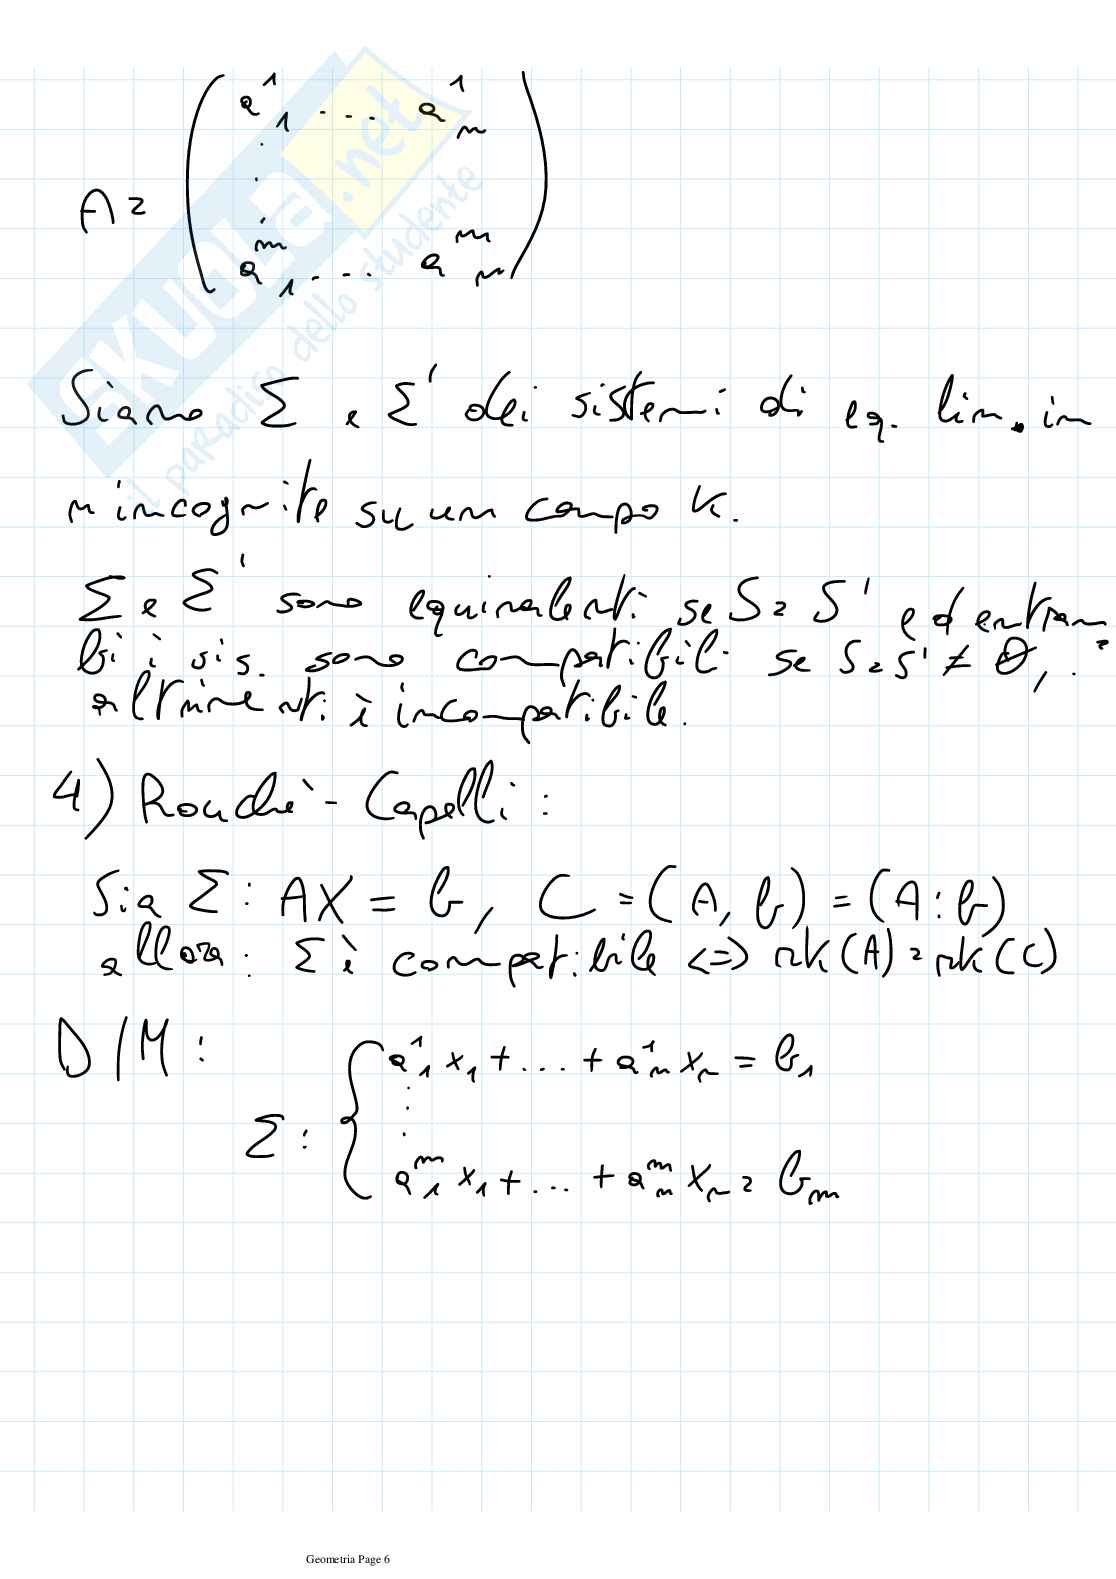 A = ( a¹₁ .... a¹ₙ
⋮
aᵐ₁ .... aᵐₙ )
SKUOLA.net
il paradiso dello studente
Siano Σ e Σ' dei sistemi di eq. lin. in
n incognite su un campo K.
Σ e Σ' sono equivalenti se S = S' ed entram
bi i sis. sono compatibili se S = S' ≠ ∅,
altrimenti è incompatibile.
4) Rouchè - Capelli :
Sia Σ : AX = b, C = (A, b) = (A : b)
allora : Σ è compatibile <=> rk(A) = rk(C)
DIM :
Σ : { a¹₁ x₁ + ... + a¹ₙ xₙ = b₁
⋮
aᵐ₁ x₁ + ... + aᵐₙ xₙ = bₘ
Geometria Page 6